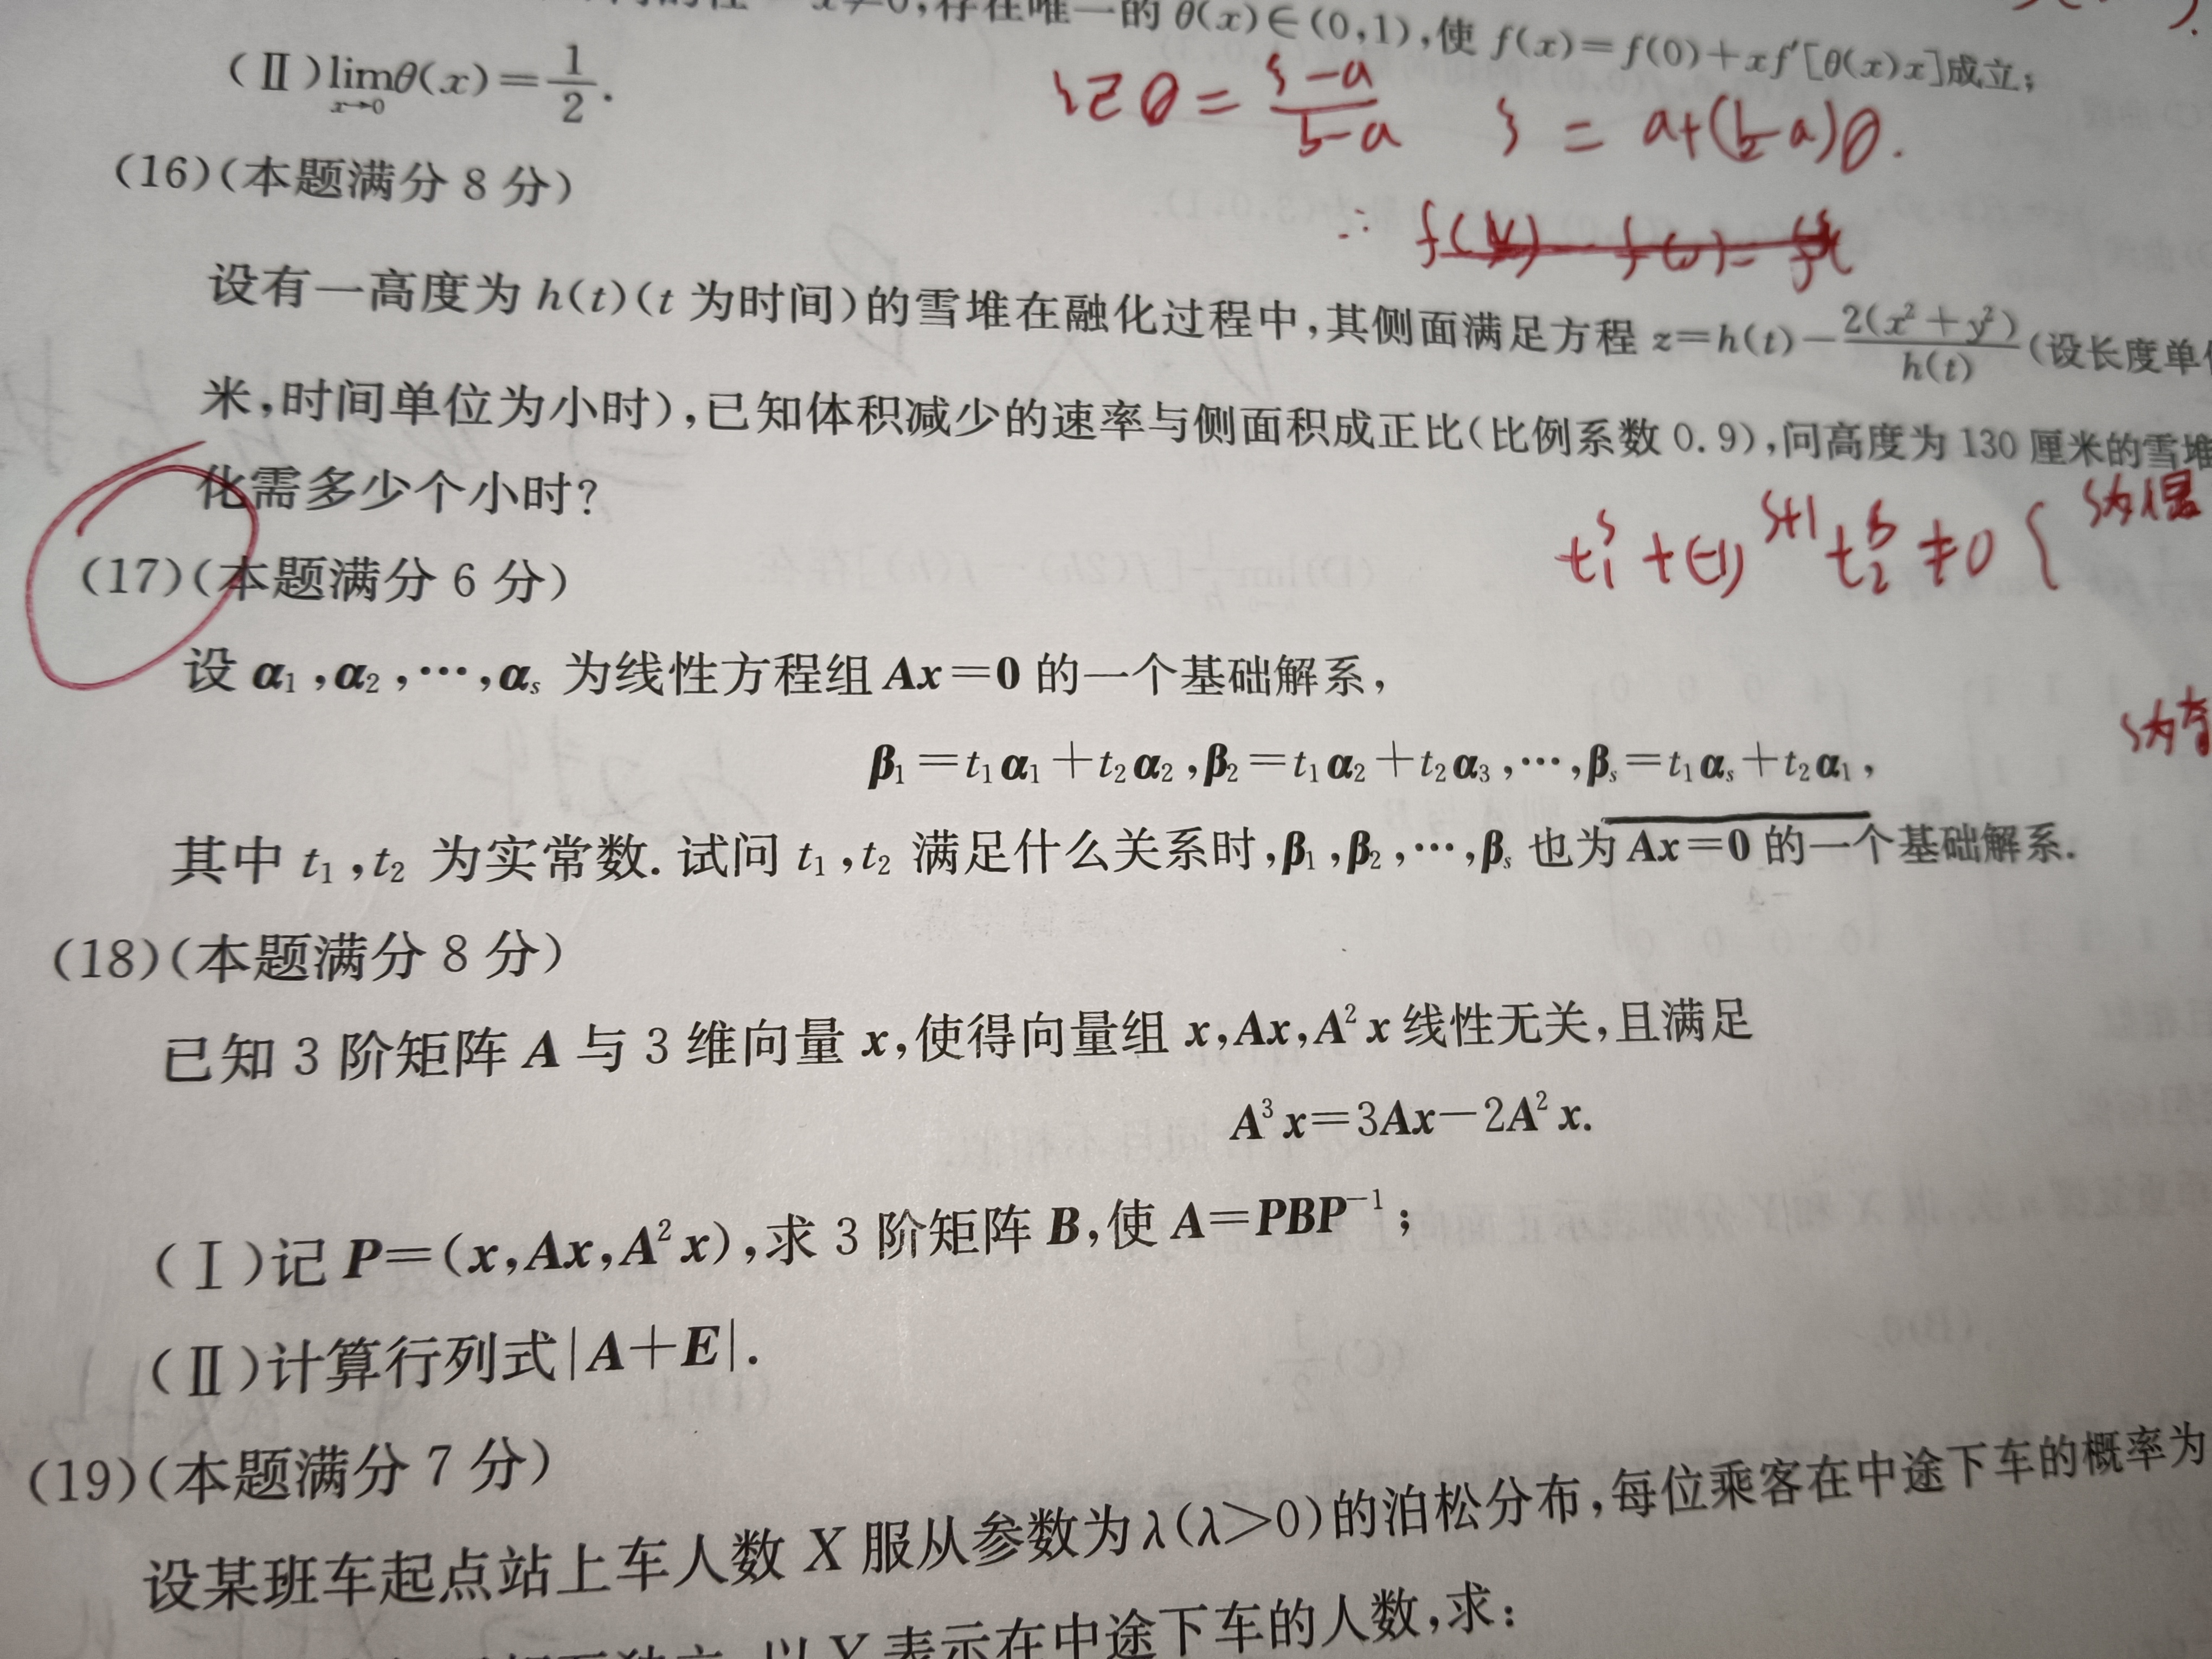 x≠0,存在唯一的 θ(x)∈(0,1),使 f(x)=f(0)+xf′[θ(x)x]成立;
(Ⅱ)lim_{x→0}θ(x)=1/2.
θ = (ξ-a)/(b-a)  ξ = a+(b-a)θ.
(16)(本题满分 8 分)
设有一高度为 h(t)(t 为时间)的雪堆在融化过程中,其侧面满足方程 z=h(t)-2(x²+y²)/h(t)(设长度单
米,时间单位为小时),已知体积减少的速率与侧面积成正比(比例系数 0.9),问高度为 130 厘米的雪堆
化需多少个小时?
t₁ˢ+(-1)ˢ⁺¹t₂ˢ≠0 { s为偶
(17)(本题满分 6 分)
设 α₁,α₂,…,αₛ 为线性方程组 Ax=0 的一个基础解系,
s为奇
β₁=t₁α₁+t₂α₂,β₂=t₁α₂+t₂α₃,…,βₛ=t₁αₛ+t₂α₁,
其中 t₁,t₂ 为实常数.试问 t₁,t₂ 满足什么关系时,β₁,β₂,…,βₛ 也为 Ax=0 的一个基础解系.
(18)(本题满分 8 分)
已知 3 阶矩阵 A 与 3 维向量 x,使得向量组 x,Ax,A²x 线性无关,且满足
A³x=3Ax-2A²x.
(Ⅰ)记 P=(x,Ax,A²x),求 3 阶矩阵 B,使 A=PBP⁻¹;
(Ⅱ)计算行列式|A+E|.
(19)(本题满分 7 分)
设某班车起点站上车人数 X 服从参数为 λ(λ>0)的泊松分布,每位乘客在中途下车的概率为
以 Y 表示在中途下车的人数,求: